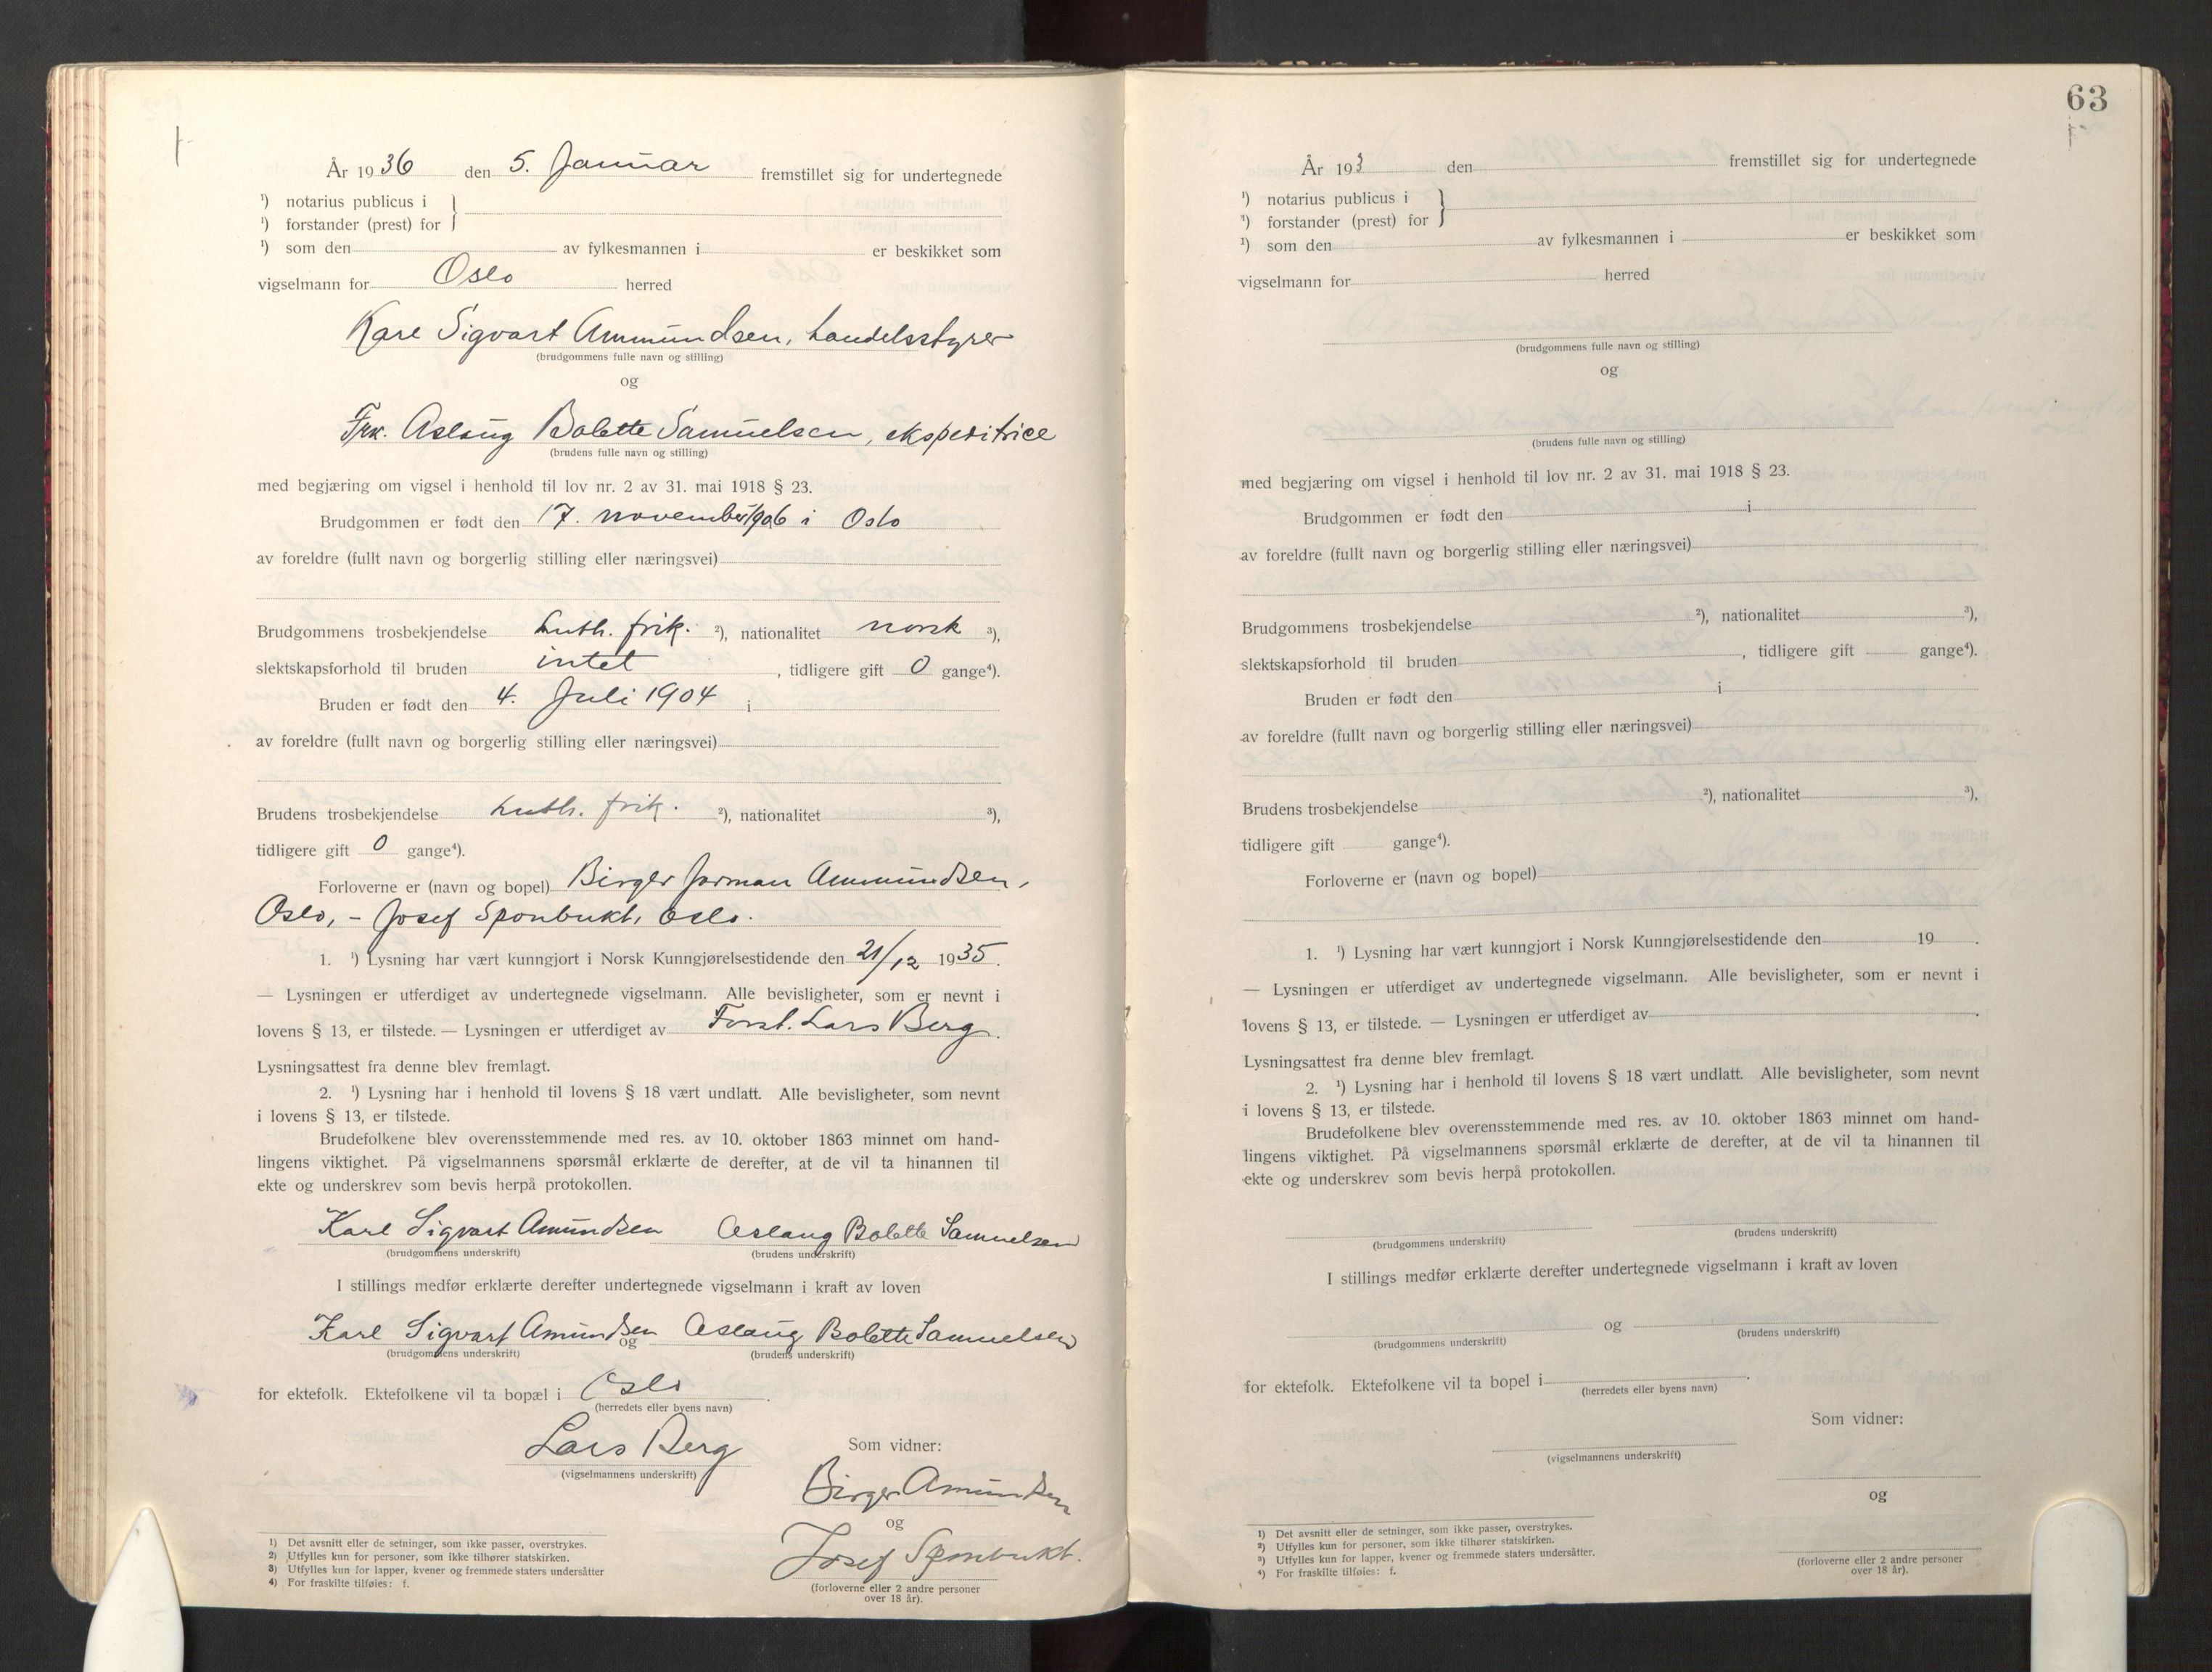 År 1936 den 5. Januar fremstillet sig for undertegnede
¹) notarius publicus i
¹) forstander (prest) for
¹) som den av fylkesmannen i er beskikket som
vigselmann for Oslo herred
Karl Sigvart Ammundsen, handelsstyrer
(brudgommens fulle navn og stilling)
og
Frk. Aslaug Bolette Samuelsen, ekspeditrice
(brudens fulle navn og stilling)
med begjæring om vigsel i henhold til lov nr. 2 av 31. mai 1918 § 23.
Brudgommen er født den 17. november 1906 i Oslo
av foreldre (fullt navn og borgerlig stilling eller næringsvei)
Brudgommens trosbekjendelse Luth. frik. ²), nationalitet norsk ³),
slektskapsforhold til bruden intet, tidligere gift 0 gange⁴).
Bruden er født den 4. Juli 1904 i
av foreldre (fullt navn og borgerlig stilling eller næringsvei)
Brudens trosbekjendelse Luth. frik. ²), nationalitet ³),
tidligere gift 0 gange⁴).
Forloverne er (navn og bopel) Birger Jorman Ammundsen,
Oslo, - Josef Sponbukt, Oslo.
1. ¹) Lysning har vært kunngjort i Norsk Kunngjørelsestidende den 21/12 1935.
— Lysningen er utferdiget av undertegnede vigselmann. Alle bevisligheter, som er nevnt i
lovens § 13, er tilstede. — Lysningen er utferdiget av Forst. Lars Berg.
Lysningsattest fra denne blev fremlagt.
2. ¹) Lysning har i henhold til lovens § 18 vært undlatt. Alle bevisligheter, som nevnt
i lovens § 13, er tilstede.
Brudefolkene blev overensstemmende med res. av 10. oktober 1863 minnet om hand-
lingens viktighet. På vigselmannens spørsmål erklærte de derefter, at de vil ta hinannen til
ekte og underskrev som bevis herpå protokollen.
Karl Sigvart Amundsen Aslaug Bolette Samuelsen
(brudgommens underskrift) (brudens underskrift)
I stillings medfør erklærte derefter undertegnede vigselmann i kraft av loven
Karl Sigvart Amundsen og Aslaug Bolette Samuelsen
(brudgommens underskrift) (brudens underskrift)
for ektefolk. Ektefolkene vil ta bopæl i Oslo.
(herredets eller byens navn)
Lars Berg
(vigselmannens underskrift)
Som vidner:
Birger Amundsen
og
Josef Sponbukt.
(forloverne eller 2 andre personer
over 18 år).
1) Det avsnitt eller de setninger, som ikke passer, overstrykes.
2) Utfylles kun for personer, som ikke tilhører statskirken.
3) Utfylles kun for lapper, kvener og fremmede staters undersåtter
4) For fraskilte tilføies: f.
63
År 193 den fremstillet sig for undertegnede
¹) notarius publicus i
¹) forstander (prest) for
¹) som den av fylkesmannen i er beskikket som
vigselmann for herred
(brudgommens fulle navn og stilling)
og
(brudens fulle navn og stilling)
med begjæring om vigsel i henhold til lov nr. 2 av 31. mai 1918 § 23.
Brudgommen er født den i
av foreldre (fullt navn og borgerlig stilling eller næringsvei)
Brudgommens trosbekjendelse ²), nationalitet ³),
slektskapsforhold til bruden, tidligere gift gange⁴).
Bruden er født den i
av foreldre (fullt navn og borgerlig stilling eller næringsvei)
Brudens trosbekjendelse ²), nationalitet ³),
tidligere gift gange⁴).
Forloverne er (navn og bopel)
1. ¹) Lysning har vært kunngjort i Norsk Kunngjørelsestidende den 19 .
— Lysningen er utferdiget av undertegnede vigselmann. Alle bevisligheter, som er nevnt i
lovens § 13, er tilstede. — Lysningen er utferdiget av .
Lysningsattest fra denne blev fremlagt.
2. ¹) Lysning har i henhold til lovens § 18 vært undlatt. Alle bevisligheter, som nevnt
i lovens § 13, er tilstede.
Brudefolkene blev overensstemmende med res. av 10. oktober 1863 minnet om hand-
lingens viktighet. På vigselmannens spørsmål erklærte de derefter, at de vil ta hinannen til
ekte og underskrev som bevis herpå protokollen.
(brudgommens underskrift) (brudens underskrift)
I stillings medfør erklærte derefter undertegnede vigselmann i kraft av loven
og
(brudgommens underskrift) (brudens underskrift)
for ektefolk. Ektefolkene vil ta bopel i .
(herredets eller byens navn)
Som vidner:
(vigselmannens underskrift)
og
(forloverne eller 2 andre personer
over 18 år).
1) Det avsnitt eller de setninger, som ikke passer, overstrykes.
2) Utfylles kun for personer, som ikke tilhører statskirken.
3) Utfylles kun for lapper, kvener og fremmede staters undersåtter.
4) For fraskilte tilføies: f.